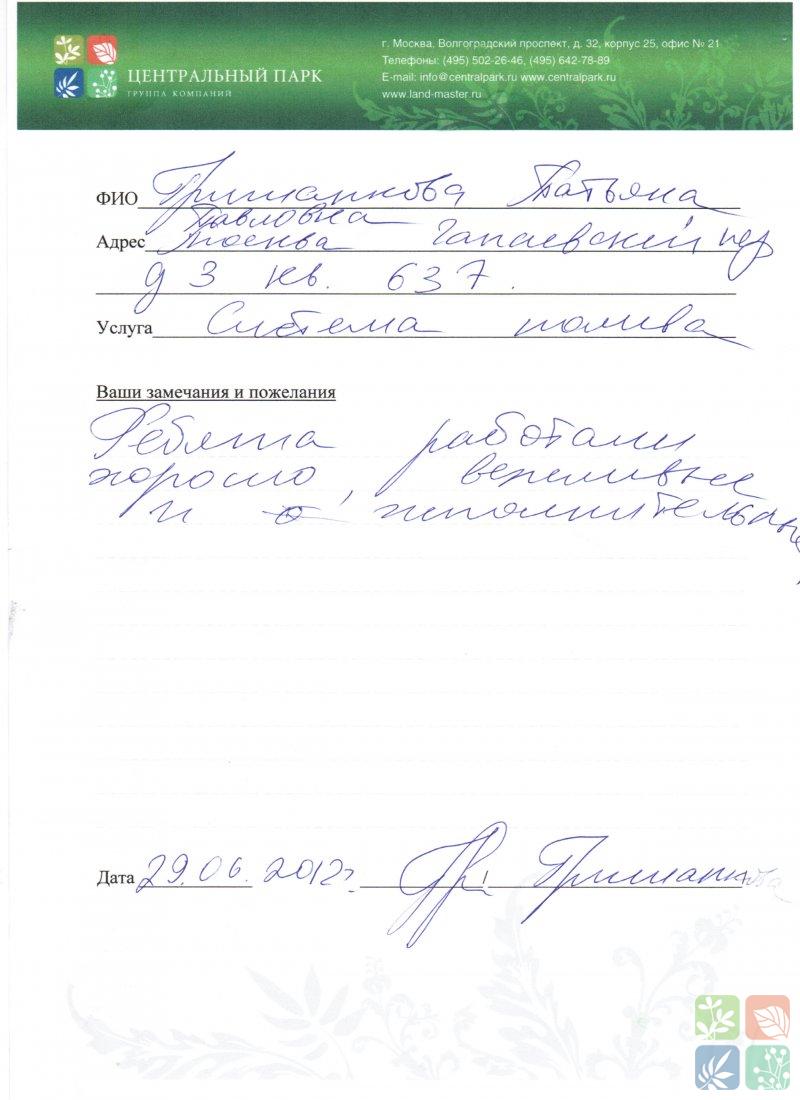 ЦЕНТРАЛЬНЫЙ ПАРК
ГРУППА КОМПАНИЙ
г. Москва, Волгоградский проспект, д. 32, корпус 25, офис № 21
Телефоны: (495) 502-26-46, (495) 642-78-89
E-mail: info@centralpark.ru www.centralpark.ru
www.land-master.ru
ФИО Татьяна
Павловна
Адрес Москва Чапаевский пер
д 3 кв. 637.
Услуга Система полива
Ваши замечания и пожелания
Ребята работали
хорошо, вежливые
и исполнительные
Дата 29.06.2012г.